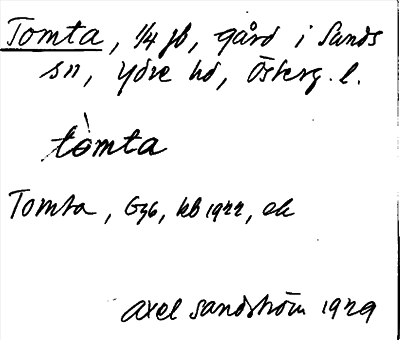 Tomta, 1/4 jb, gård i Sunds
sn, Ydre hd, Österg. l.
tòmta
Tomta, G36, kb 1922, ek
Axel Sandström 1929